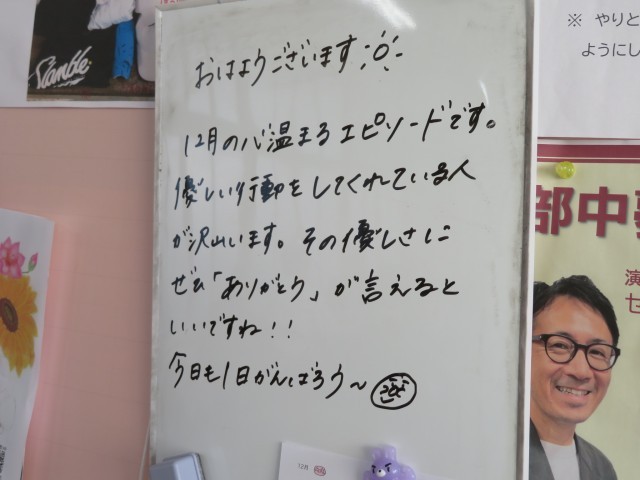 Ramble
※ やりと
ようにし
おはようございます
12月の心温まるエピソードです。
優しい行動をしてくれている人
が沢山います。その優しさに
ぜひ「ありがとう」が言えると
いいですね！！
今日も1日がんばろう〜
部中
演
セ
12月